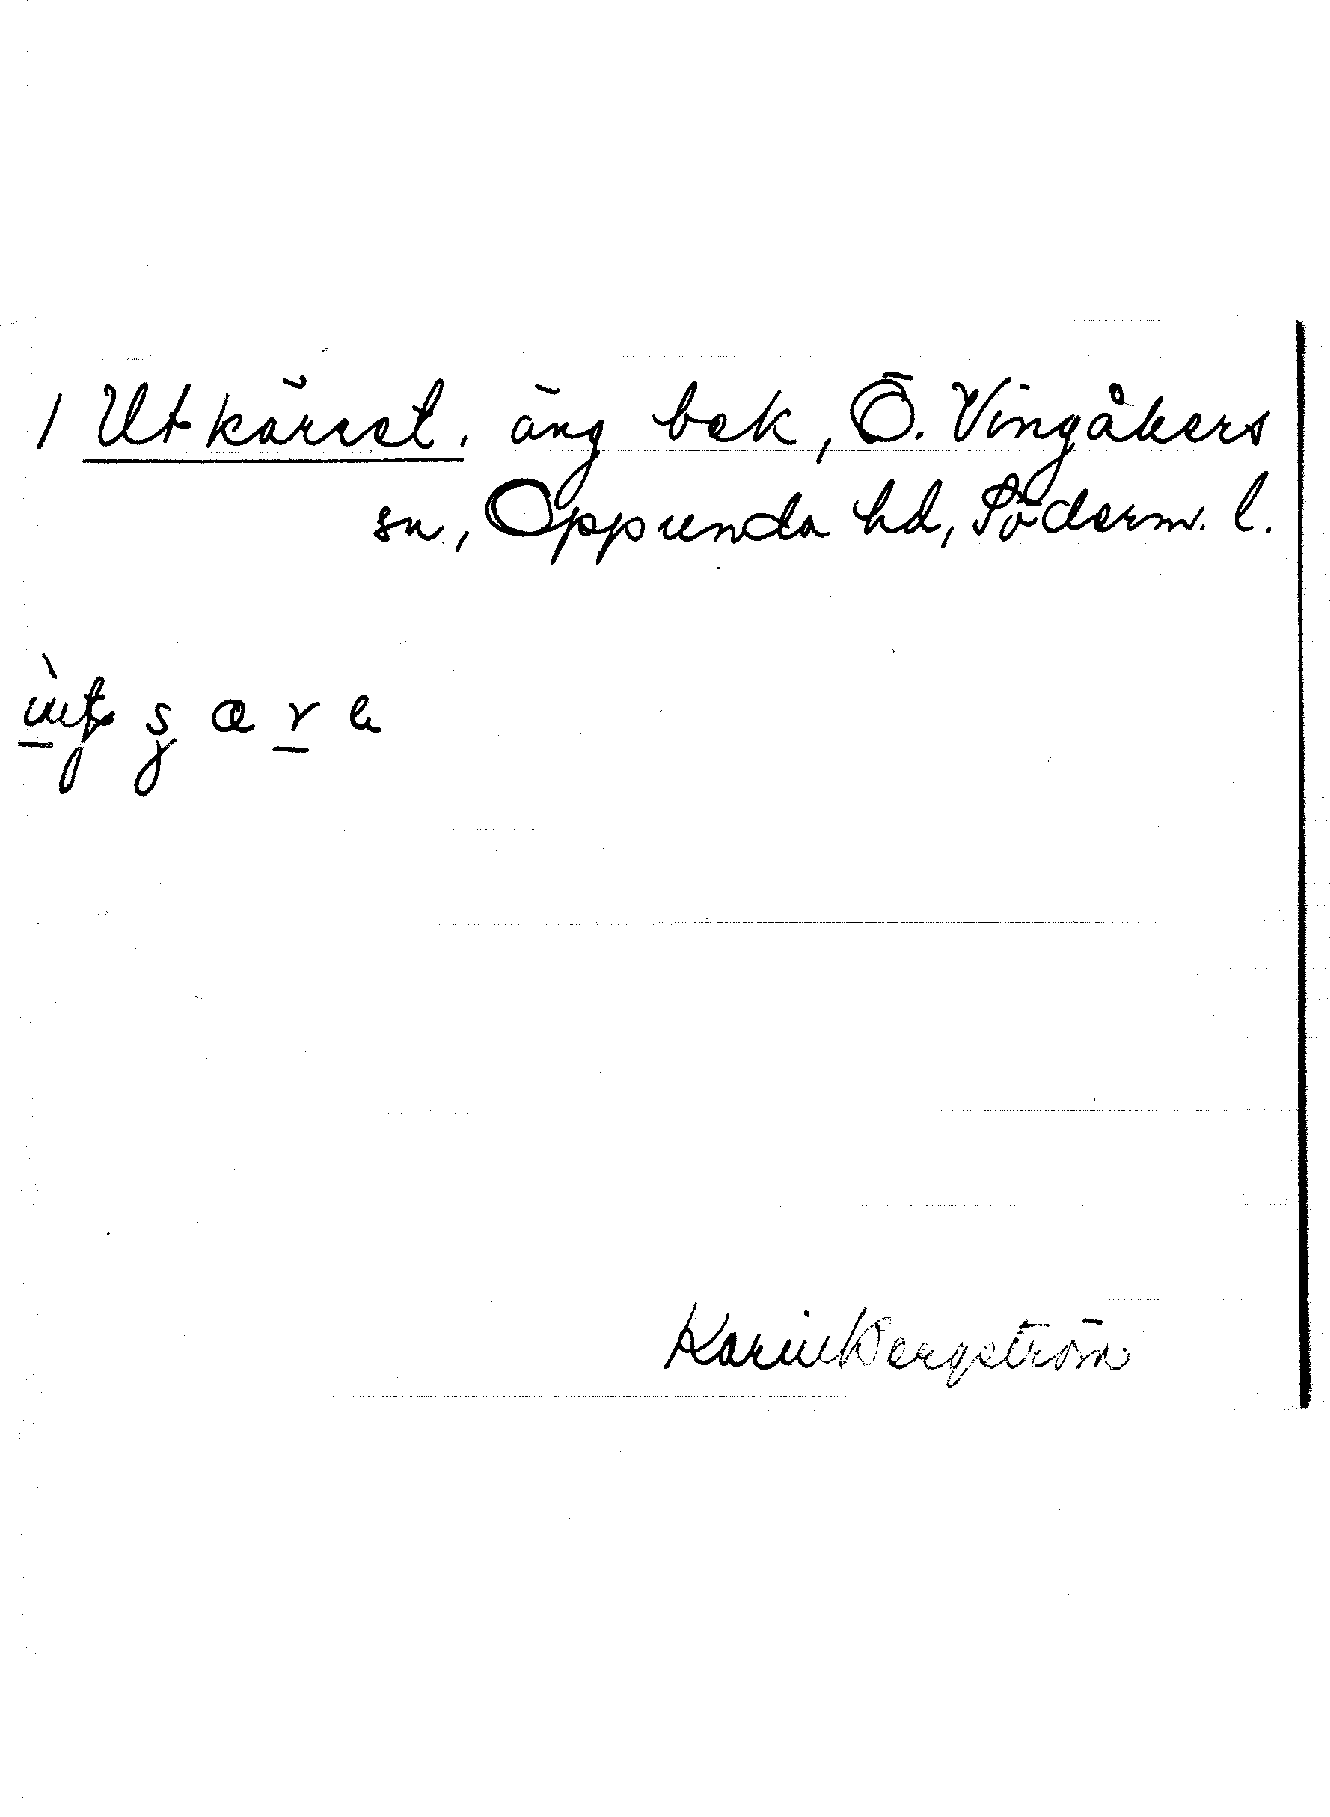 1 Utkärret. äng bek, Ö. Vingåkers
sn, Oppunda hd, Söderm. l.
Karin Bergström